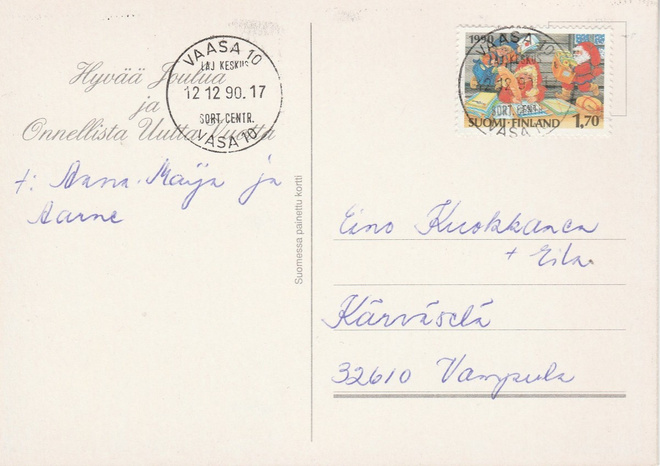 Hyvää Joulua
ja
Onnellista Uutta Vuotta
t: Anna-Maija ja
Aarne
VAASA 10
LAJ.KESKUS
12 12 90.17
SORT.CENTR.
VASA 10
Suomessa painettu kortti
1990
VAASA 10
LAJ.KESKUS
12 12 90
SORT.CENTR.
VASA
SUOMI FINLAND 1,70
Eino Kuokkanen
+ Eila
Kärväselä
32610 Vampula